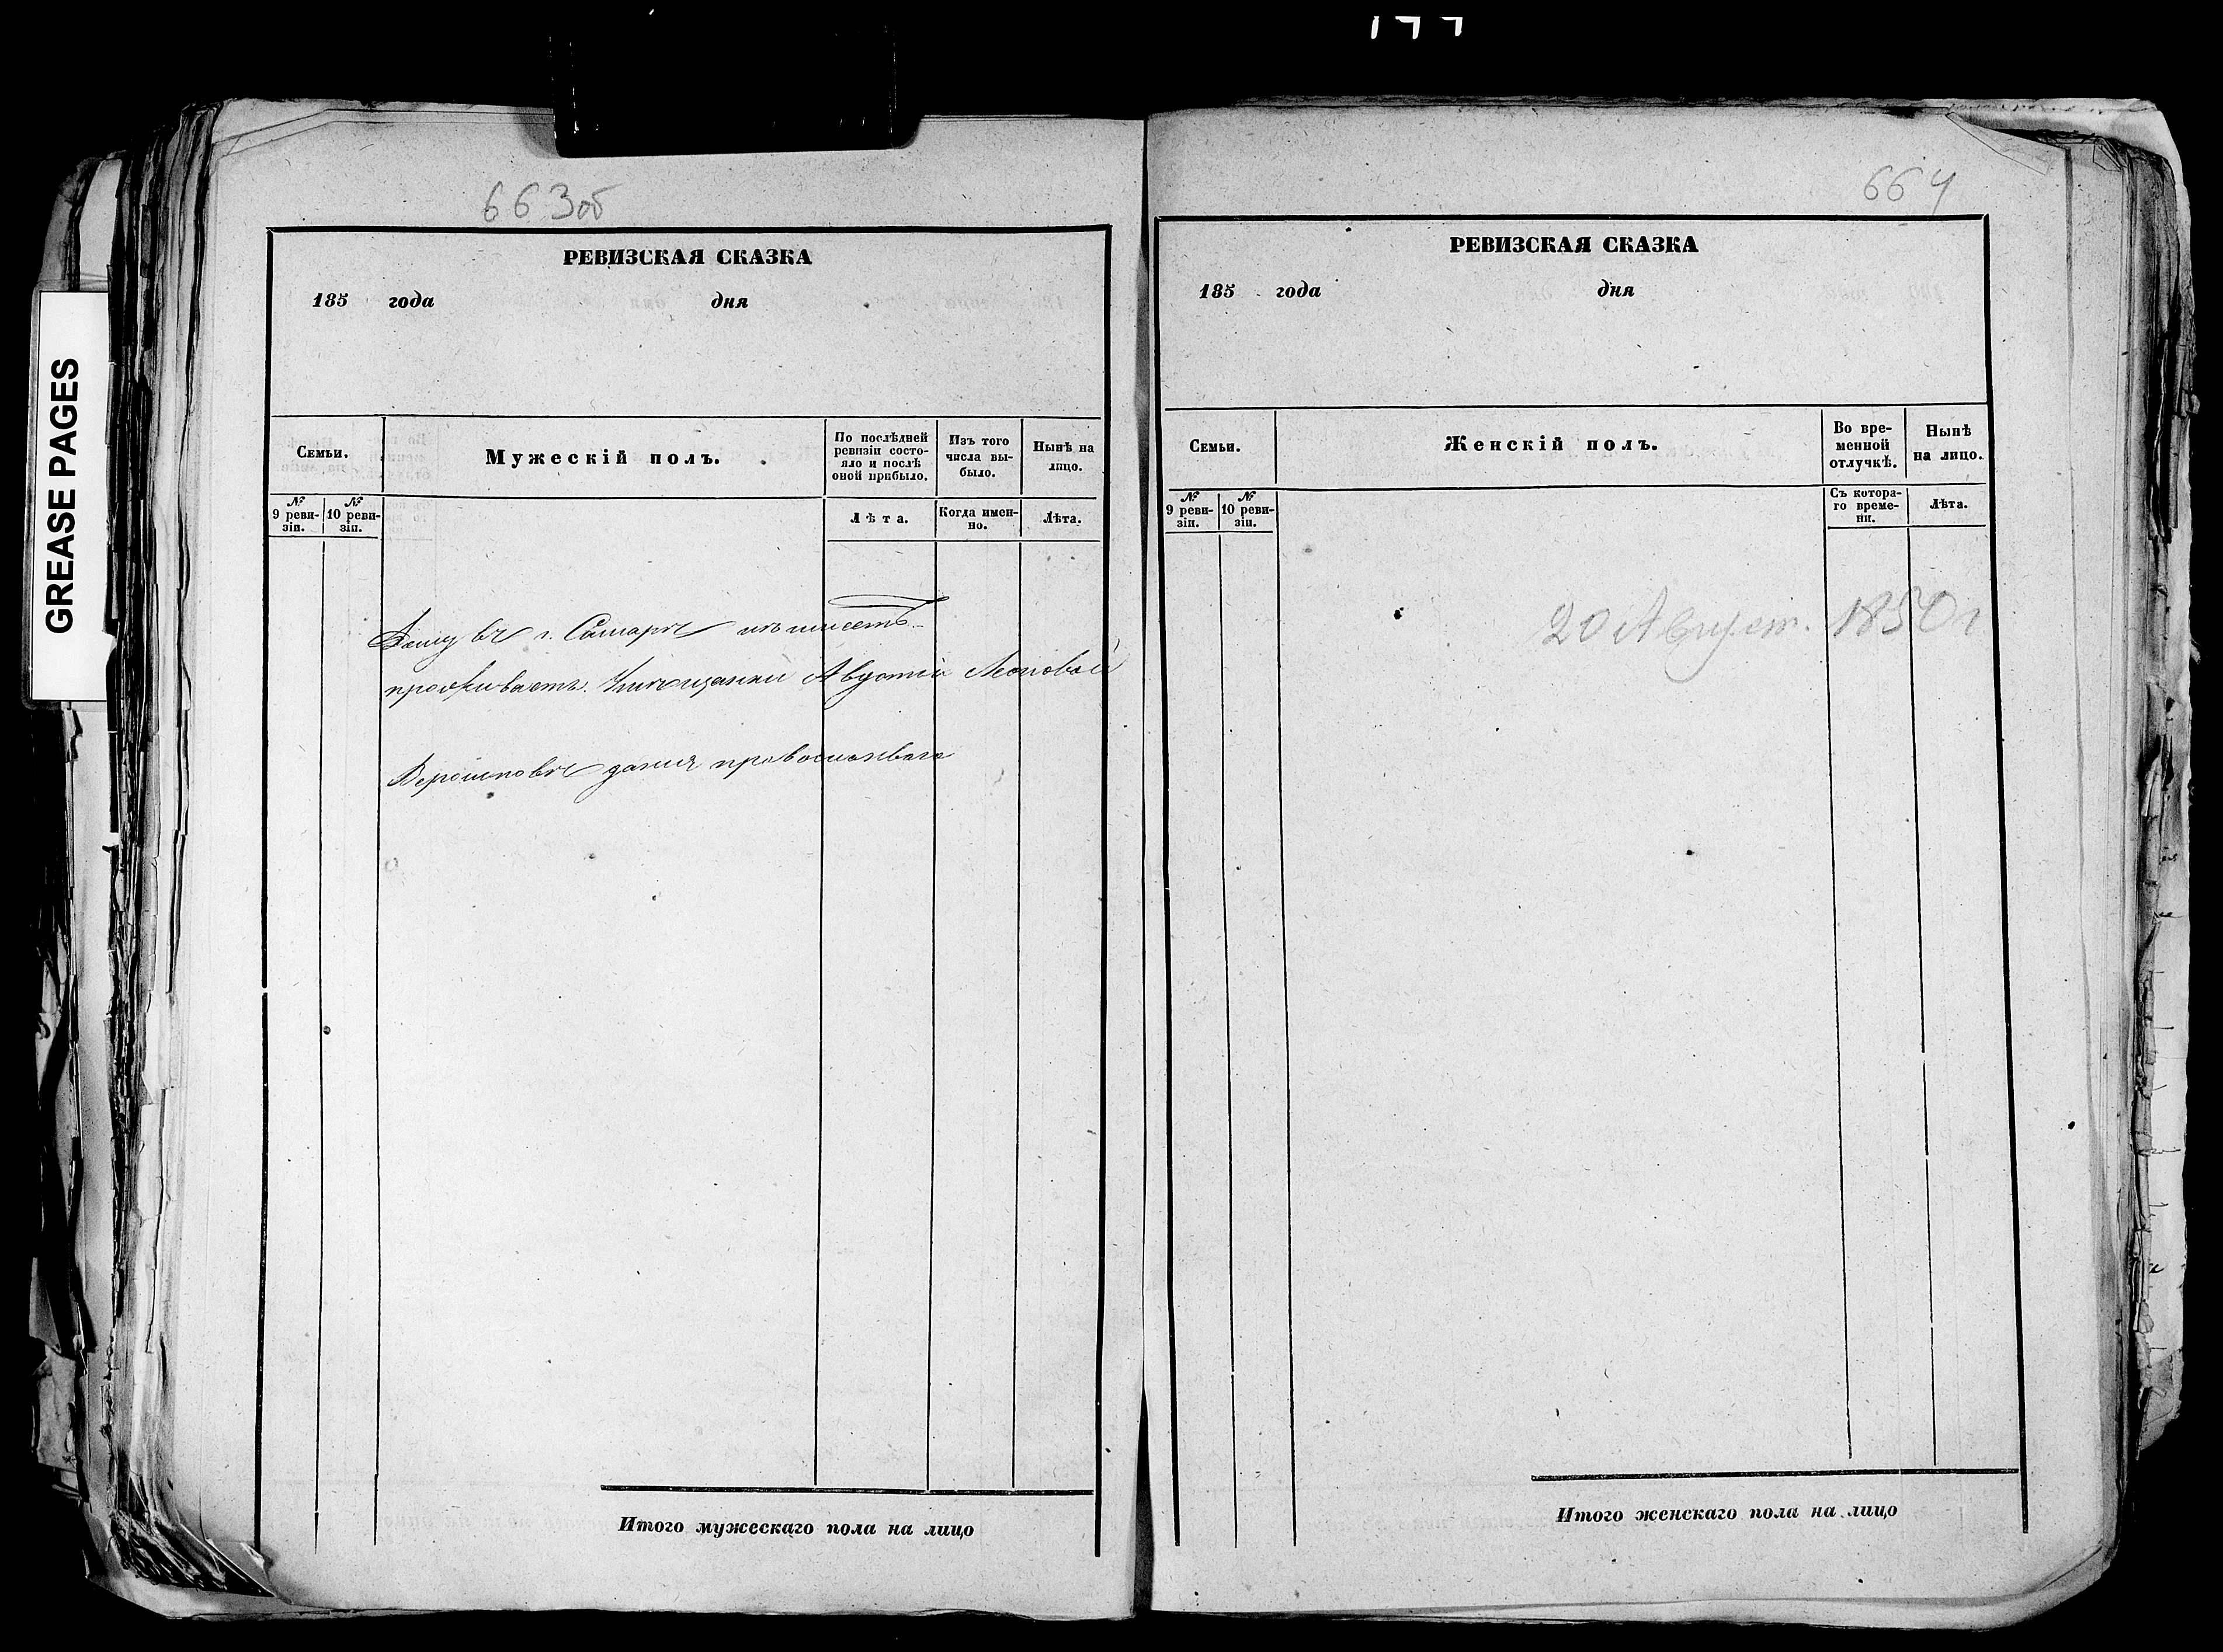 GREASE PAGES
663об
РЕВИЗСКАЯ СКАЗКА
185 года дня
Семьи.
Мужескій полъ.
По послѣдней ревизіи состояло и послѣ оной прибыло.
Изъ того числа выбыло.
Нынѣ на лицо.
№ 9 ревизіи.
№ 10 ревизіи.
Лѣта.
Когда именно.
Лѣта.
Дому въ г. Самарѣ не имеетъ
проживаетъ Августы
православнаго
Итого мужескаго пола на лицо
664
РЕВИЗСКАЯ СКАЗКА
185 года дня
Семьи.
Женскій полъ.
Во временной отлучкѣ.
Нынѣ на лицо.
№ 9 ревизіи.
№ 10 ревизіи.
Съ котораго времени.
Лѣта.
20 Август. 1850 г
Итого женскаго пола на лицо